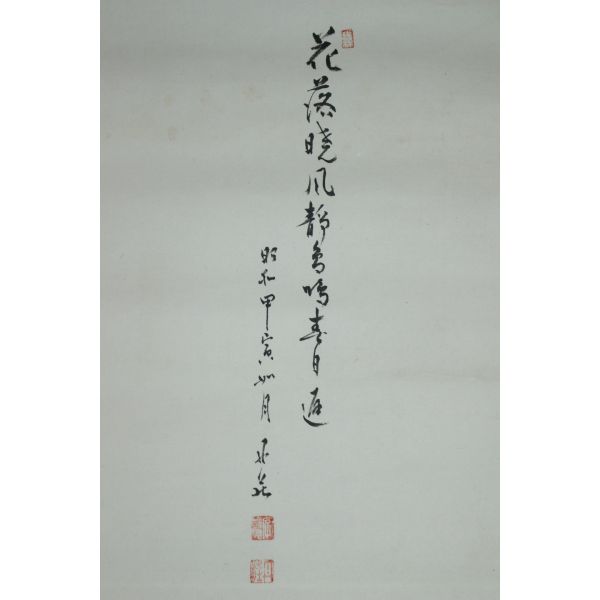 花落暁風靜鳥鳴春日遅
昭和甲寅如月